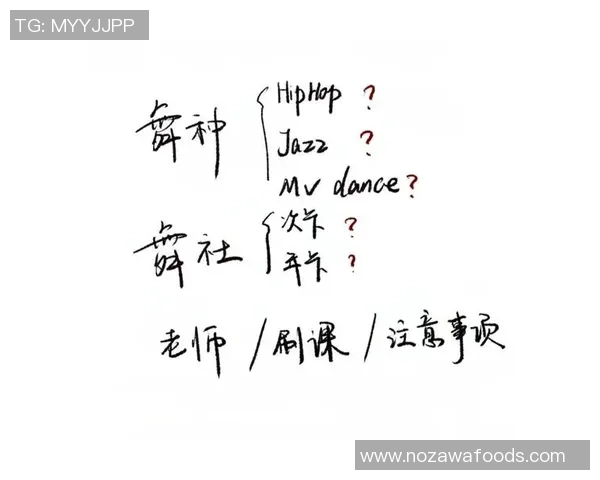 TG: MYYJJPP
舞种
HipHop ?
Jazz ?
MV dance ?
舞社
次卡 ?
年卡 ?
老师 / 刷课 / 注意事项
www.nozawafoods.com